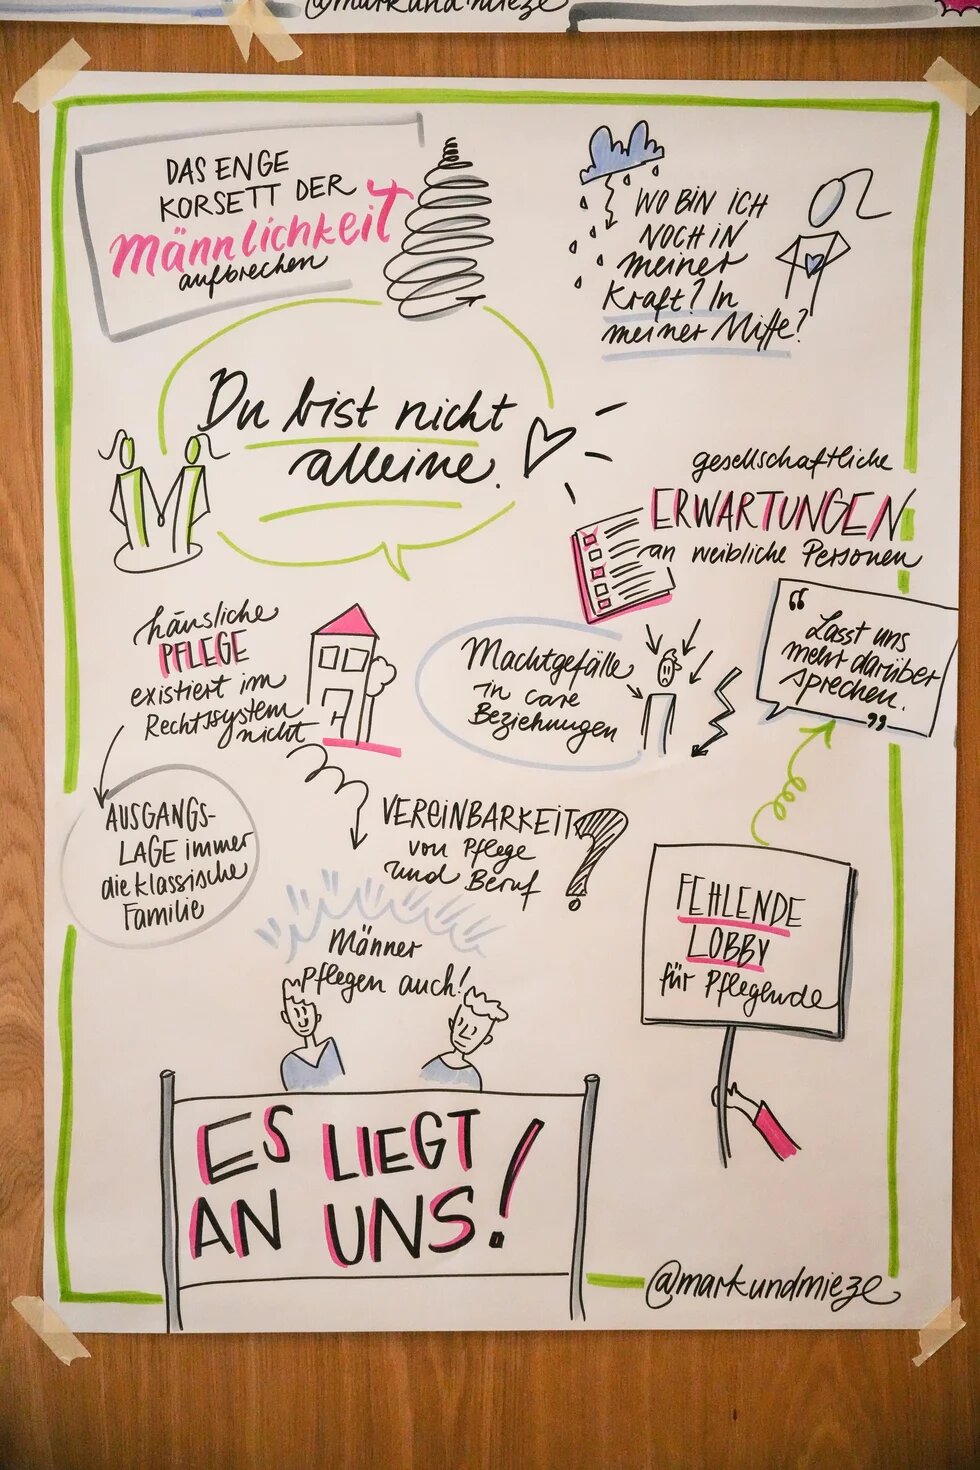 @markundmieze
DAS ENGE
KORSETT DER
Männlichkeit
aufbrechen
WO BIN ICH
NOCH IN
meiner
Kraft? In
meiner Mitte?
Du bist nicht
alleine.
gesellschaftliche
ERWARTUNGEN
an weibliche Personen
häusliche
PFLEGE
existiert im
Rechtssystem
nicht
Machtgefälle
in care
Beziehungen
“
Lasst uns
mehr darüber
sprechen.
”
AUSGANGS-
LAGE immer
die klassische
Familie
VEREINBARKEIT
von Pflege
und Beruf
?
FEHLENDE
LOBBY
für Pflegende
Männer
pflegen auch!
ES LIEGT
AN UNS!
@markundmieze